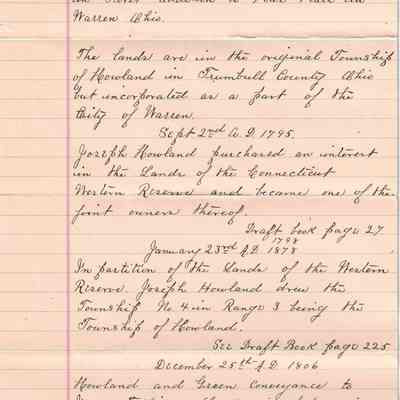 Warren Ohio.
The lands are in the original Township
of Howland in Trumbull County Ohio
but incorporated as a part of the
City of Warren.
Sept 2nd A.D. 1795.
Joseph Howland purchased an interest
in the Lands of the Connecticut
Western Reserve and became one of the
joint owners thereof.
Draft book page 27
1798
January 23rd A.D. 1878
In partition of the Lands of the Western
Reserve Joseph Howland drew the
Township No. 4 in Range 3 being the
Township of Howland.
See Draft Book page 225
December 25th A.D. 1806
Howland and Green Conveyance to